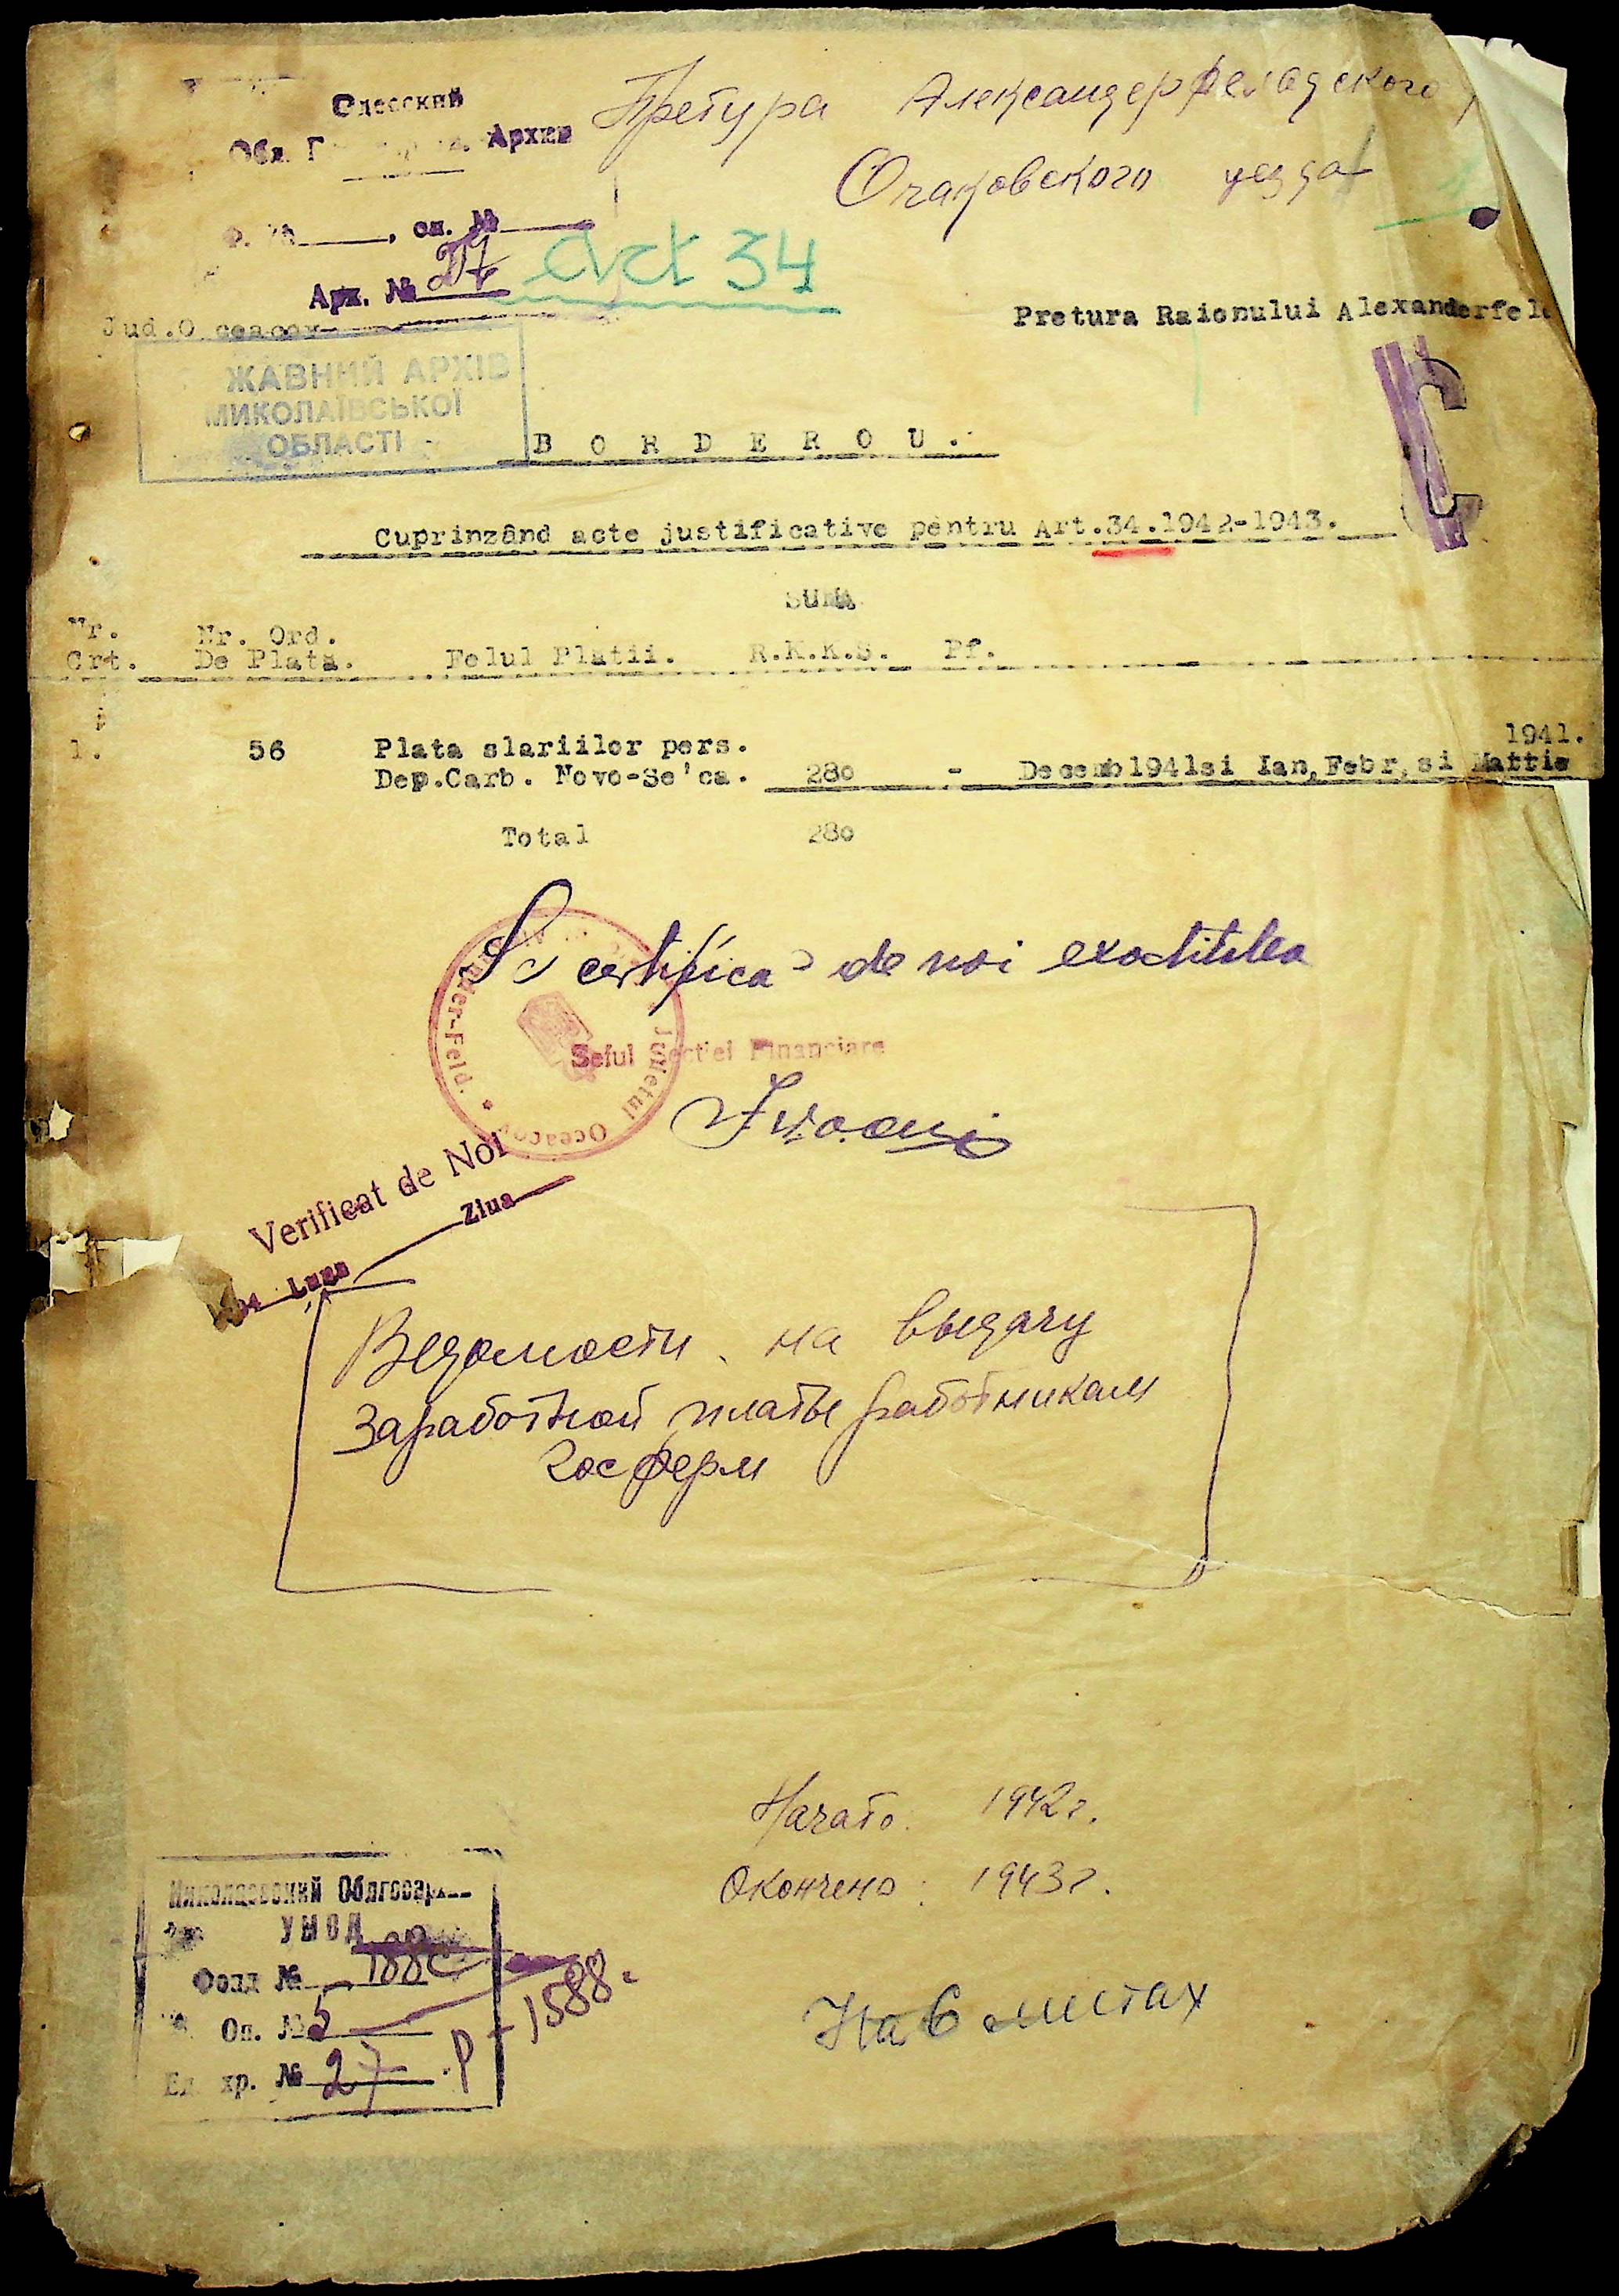 Одесский
Архив
Претура Александерфельдского
Очаковского уезда
Ф. , оп. №
Арх. № 27
Art 34
Jud.O ceacov
Pretura Raionului Alexanderfel
ЖАВНИЙ АРХІВ
МИКОЛАЇВСЬКОЇ
ОБЛАСТІ
B O R D E R O U .
Cuprinzând acte justificative pentru Art.34.1942-1943.
SUMA
Nr. Nr. Ord.
Crt. De Plata. Felul Platii. R.K.K.S. Pf.
1941.
1. 56 Plata slariilor pers.
Dep.Carb. Novo-Se'ca. 280 - Decemb1941si Ian,Febr,si Mattie
Total 280
Se certifica de noi exactitatea
Seful Sectiei Financiare
Judetul Oceacov
ander-Feld.
Verificat de Noi
Ziua
194 Luna
Ведомости на выдачу
заработной платы работникам
госферм
Начато: 1942г.
Окончено: 1943г.
На 6 листах
Николаевский Облгосархив
УМОД
Фонд №
Оп. № 5
Р-1588.
Ед. хр. № 27